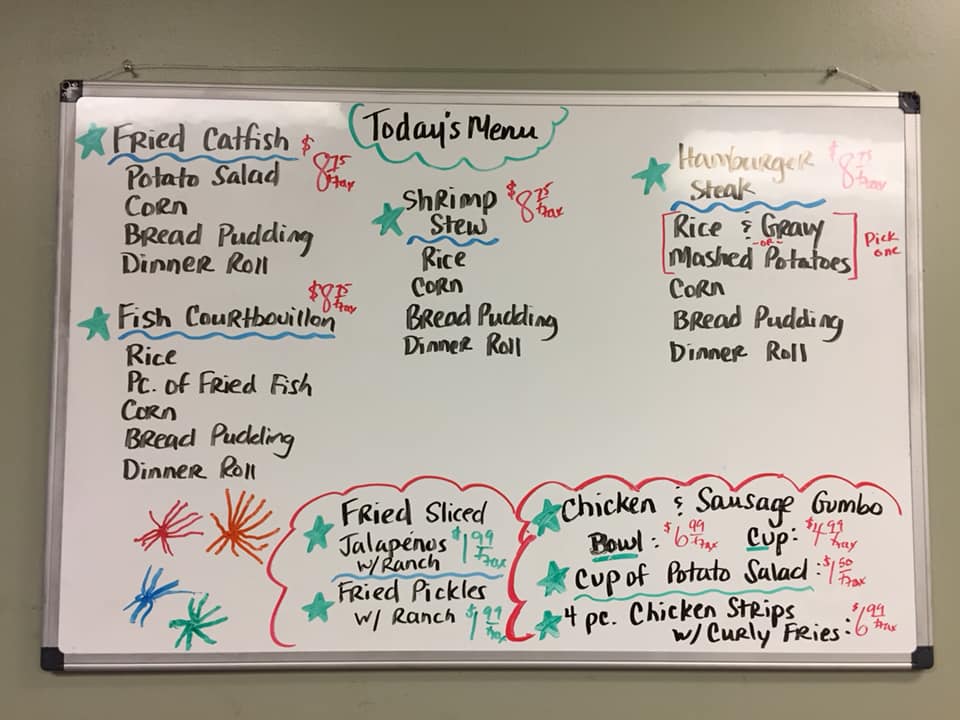 Today's Menu
Fried Catfish $8.75 + tax
Potato Salad
Corn
Bread Pudding
Dinner Roll
Fish Courtbouillon $8.75 + tax
Rice
Pc. of Fried Fish
Corn
Bread Pudding
Dinner Roll
Shrimp $8.75 + tax
Stew
Rice
Corn
Bread Pudding
Dinner Roll
Hamburger $8.75 + tax
Steak
Rice & Gravy
-or-
Mashed Potatoes
Pick
one
Corn
Bread Pudding
Dinner Roll
Fried Sliced
Jalapeños $1.99 + tax
w/Ranch
Fried Pickles
w/ Ranch $1.99 + tax
Chicken & Sausage Gumbo
Bowl: $6.99 + tax Cup: $4.99 + tax
Cup of Potato Salad: $1.50 + tax
4 pc. Chicken Strips
w/ Curly Fries: $6.99 + tax